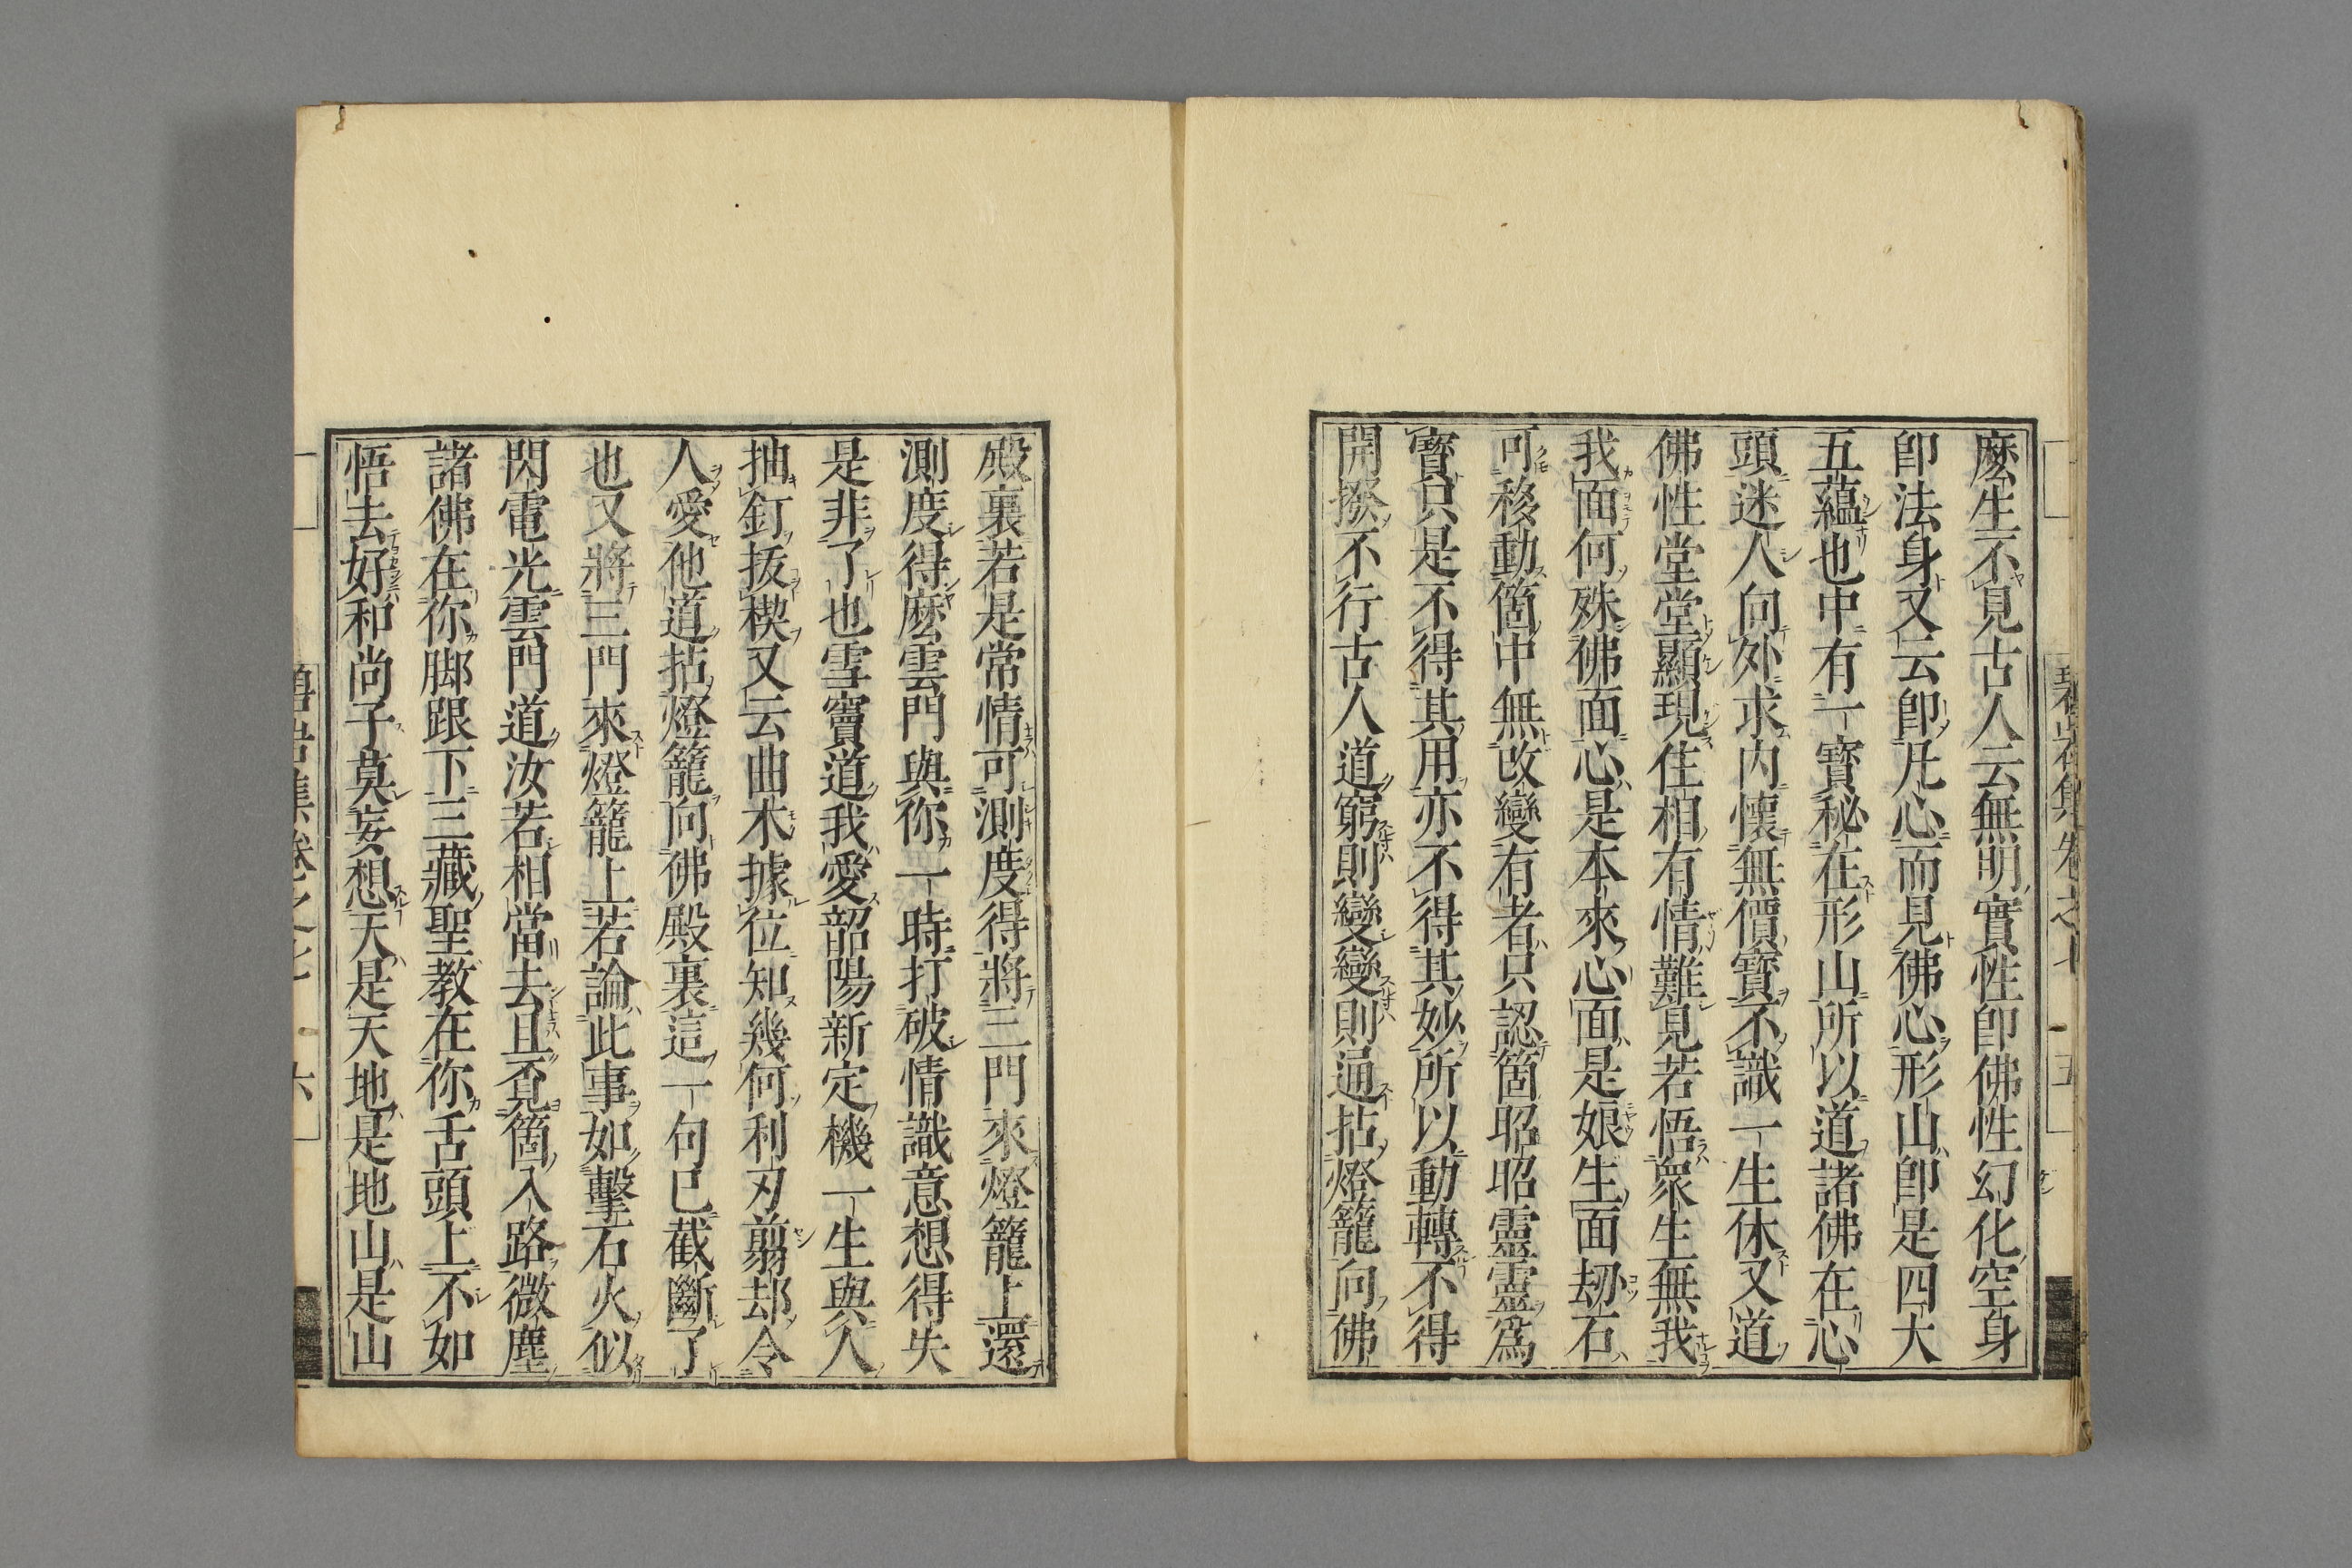 麽生不見古人云無明實性卽佛性幻化空身
卽法身又云卽凡心而見佛心形山卽是四大
五蘊也中有一寶秘在形山所以道諸佛在心
頭迷人向外求內懷無價寶不識一生休又道
佛性堂堂顯現住相有情難見若悟衆生無我
我面何殊佛面心是本來心面是娘生面劫石
可移動箇中無改變有者只認箇昭昭靈靈爲
寶只是不得其用亦不得其妙所以動轉不得
開撥不行古人道窮則變變則通拈燈籠向佛
殿裏若是常情可測度得將三門來燈籠上還
測度得麽雲門與你一時打破情識意想得失
是非了也雪竇道我愛韶陽新定機一生與人
抽釘拔楔又云曲木據位知幾何利刃剪却令
人愛他道拈燈籠向佛殿裏這一句已截斷了
也又將三門來燈籠上若論此事如擊石火似
閃電光雲門道汝若相當去且覔箇入路微塵
諸佛在你脚跟下三藏聖教在你舌頭上不如
悟去好和尚子莫妄想天是天地是地山是山
碧岩集卷之七
十六